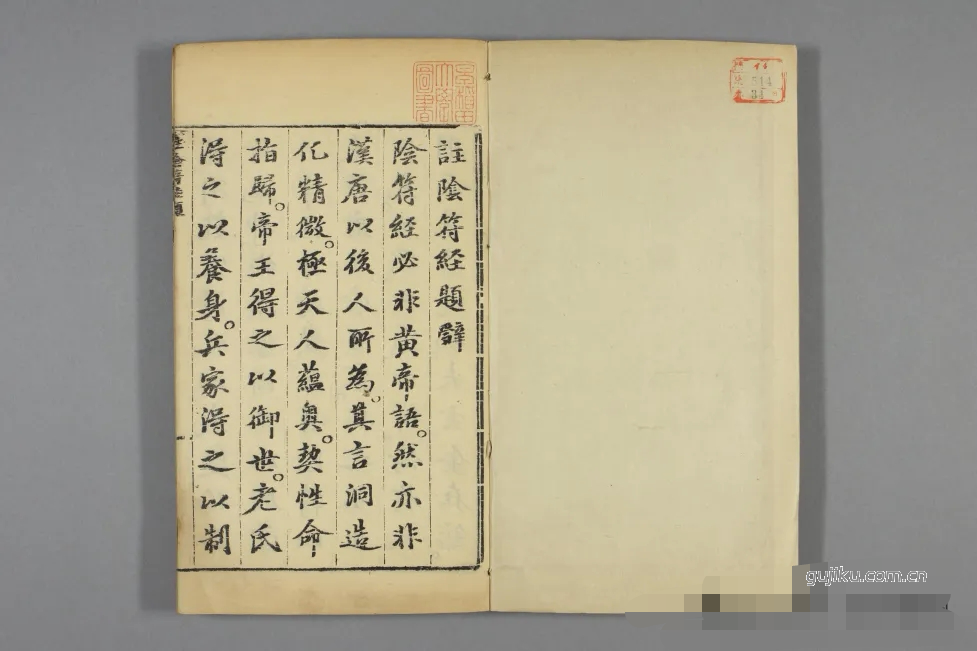 註陰符経題辭
陰符経必非黄帝語。然亦非
漢唐以後人所為。其言洞造
化精微。極天人蘊奥。契性命
指歸。帝王得之以御世。老氏
得之以養身。兵家得之以制
gujiku.com.cn
514